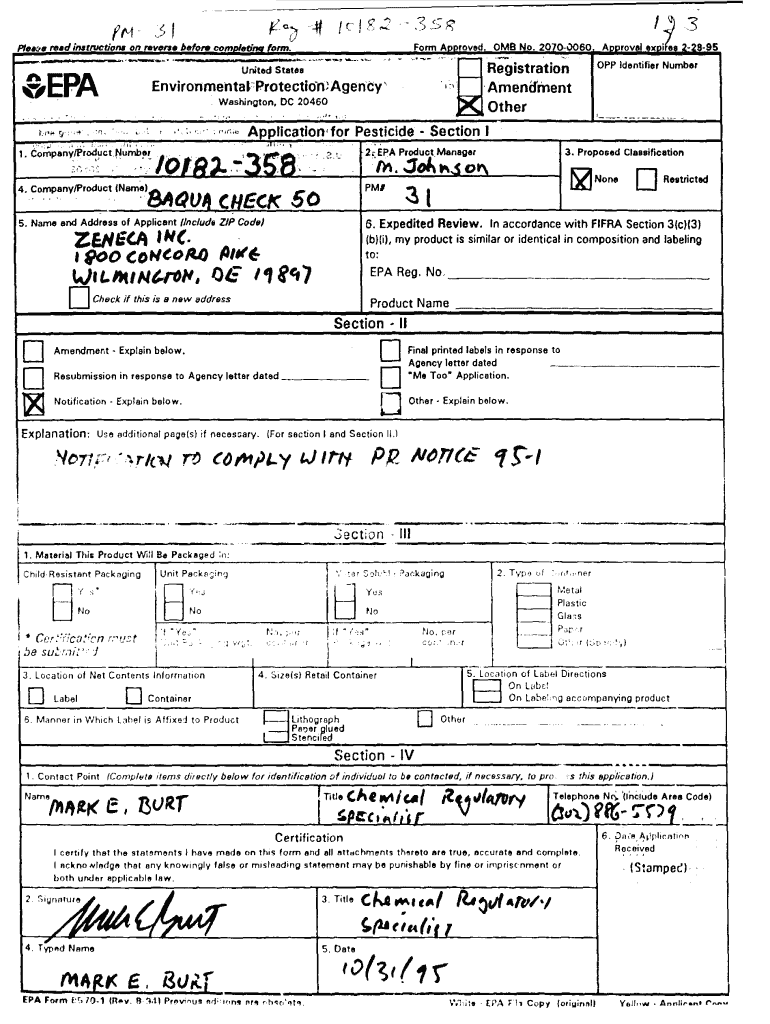 PM- 31 Reg # 10182-358 1 of 3
Please read instructions on reverse before completing form. Form Approved, OMB No. 2070-0060, Approval expires 2-28-95
EPA
United States
Environmental Protection Agency
Washington, DC 20460
Registration
Amendment
Other
OPP Identifier Number
Application for Pesticide - Section I
1. Company/Product Number
10182-358
2. EPA Product Manager
M. Johnson
3. Proposed Classification
None Restricted
4. Company/Product (Name)
BAQUA CHECK 50
PM#
31
5. Name and Address of Applicant (Include ZIP Code)
ZENECA INC.
1800 CONCORD PIKE
WILMINGTON, DE 19897
Check if this is a new address
6. Expedited Review. In accordance with FIFRA Section 3(c)(3)
(b)(i), my product is similar or identical in composition and labeling
to:
EPA Reg. No.
Product Name
Section - II
Amendment - Explain below.
Resubmission in response to Agency letter dated
Notification - Explain below.
Final printed labels in response to
Agency letter dated
"Me Too" Application.
Other - Explain below.
Explanation: Use additional page(s) if necessary. (For section I and Section II.)
NOTIFICATION TO COMPLY WITH PR NOTICE 95-1
Section - III
1. Material This Product Will Be Packaged in:
Child Resistant Packaging
Yes*
No
* Certification must
be submitted
Unit Packaging
Yes
No
If "Yes" No. per
Unit Packaging wgt. container
Water Soluble Packaging
Yes
No
If "Yes" No. per
container
2. Type of Container
Metal
Plastic
Glass
Paper
Other (Specify)
3. Location of Net Contents Information
Label Container
4. Size(s) Retail Container
5. Location of Label Directions
On Label
On Labeling accompanying product
6. Manner in Which Label is Affixed to Product
Lithograph
Paper glued
Stenciled
Other
Section - IV
1. Contact Point (Complete items directly below for identification of individual to be contacted, if necessary, to process this application.)
Name
MARK E. BURT
Title Chemical Regulatory
SPECIALIST
Telephone No. (Include Area Code)
(302) 886-5579
Certification
I certify that the statements I have made on this form and all attachments thereto are true, accurate and complete.
I acknowledge that any knowingly false or misleading statement may be punishable by fine or imprisonment or
both under applicable law.
6. Date Application
Received
(Stamped)
2. Signature
Mark E Burt
3. Title Chemical Regulatory
Specialist
4. Typed Name
MARK E. BURT
5. Date
10/31/95
EPA Form 8570-1 (Rev. 8-94) Previous editions are obsolete. White - EPA File Copy (original) Yellow - Applicant Copy